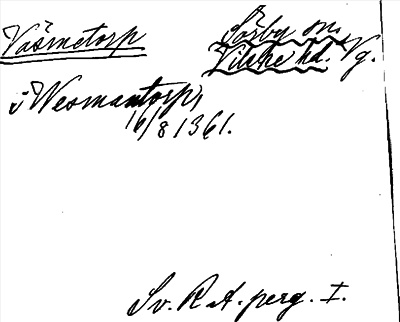 Väsmetorp
Säsby sn.
Vilske hd. Vg.
i Wesmantorp,
16/8 1361.
Sv. R A. perg. I.